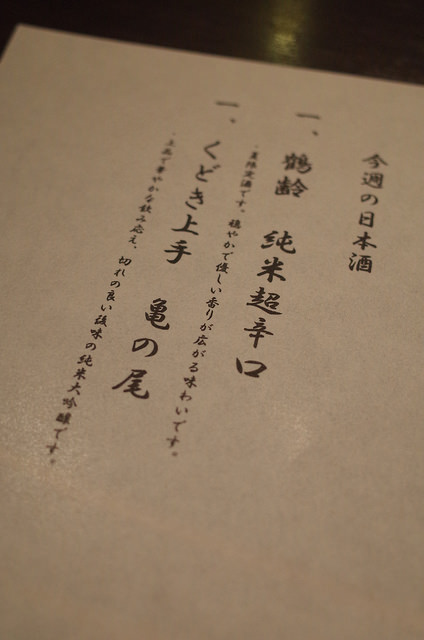 今週の日本酒
一、鶴齢 純米超辛口
・夏限定酒です。穏やかで優しい香りが広がる味わいです。
一、くどき上手 亀の尾
・上品で華やかな飲み応え、切れの良い後味の純米大吟醸です。